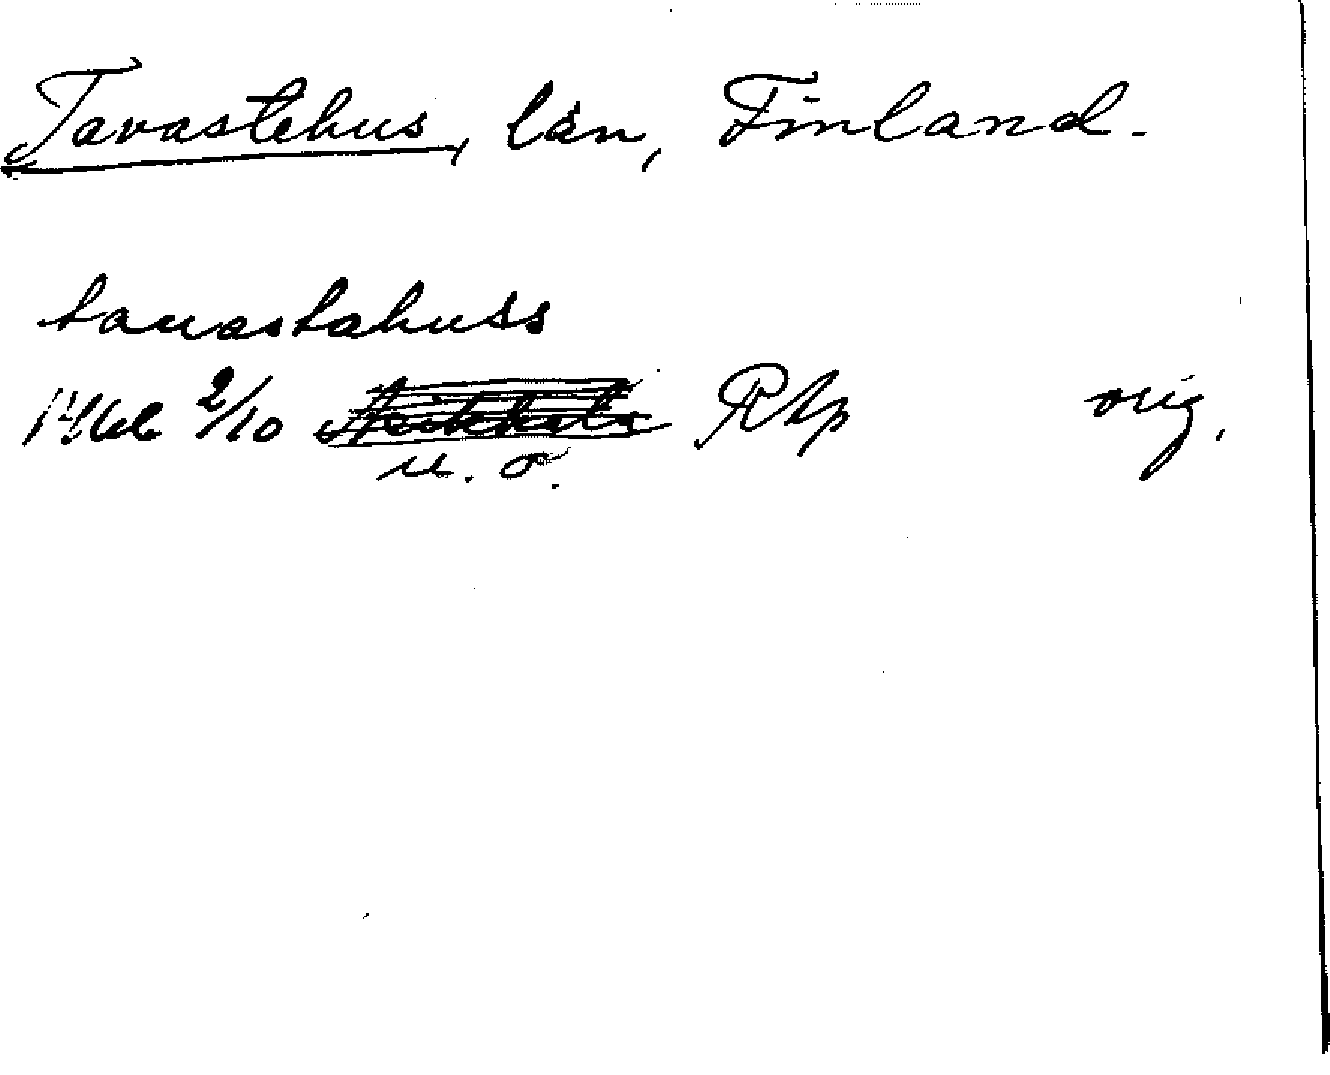 Tavastehus, län, Finland.
tauastahuss
1466 2/10 Rap orig.
u. o.